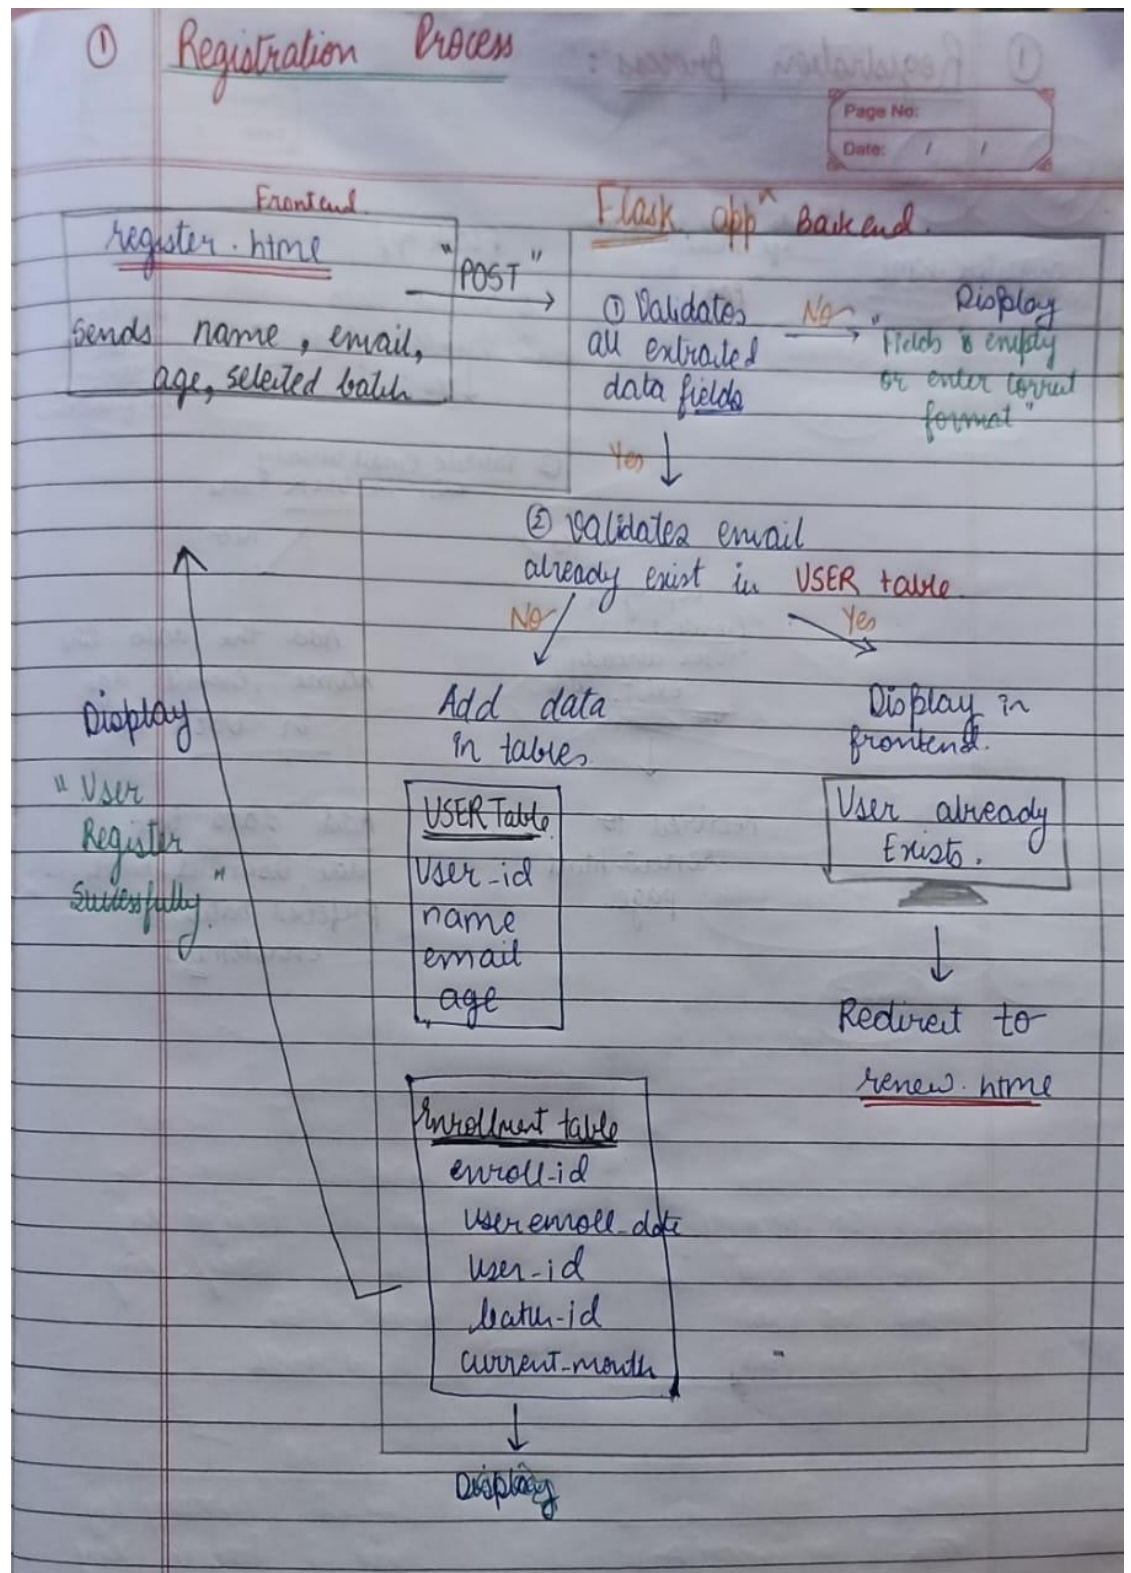 ① Registration Process
Page No:
Date: / /
Frontend
register.html
sends name, email,
age, selected batch
"POST"
Flask app" Backend
① Validates
all extracted
data fields
No
Display
"Fields is empty
or enter correct
format"
Yes
② Validates email
already exist in USER table
No
Yes
Add data
in tables
USER Table
User_id
name
email
age
Enrollment table
enroll-id
user enroll_date
user-id
batch-id
current-month
Display
Display in
frontend.
User already
Exists.
Redirect to
renew.html
Display
"User
Register
Successfully"